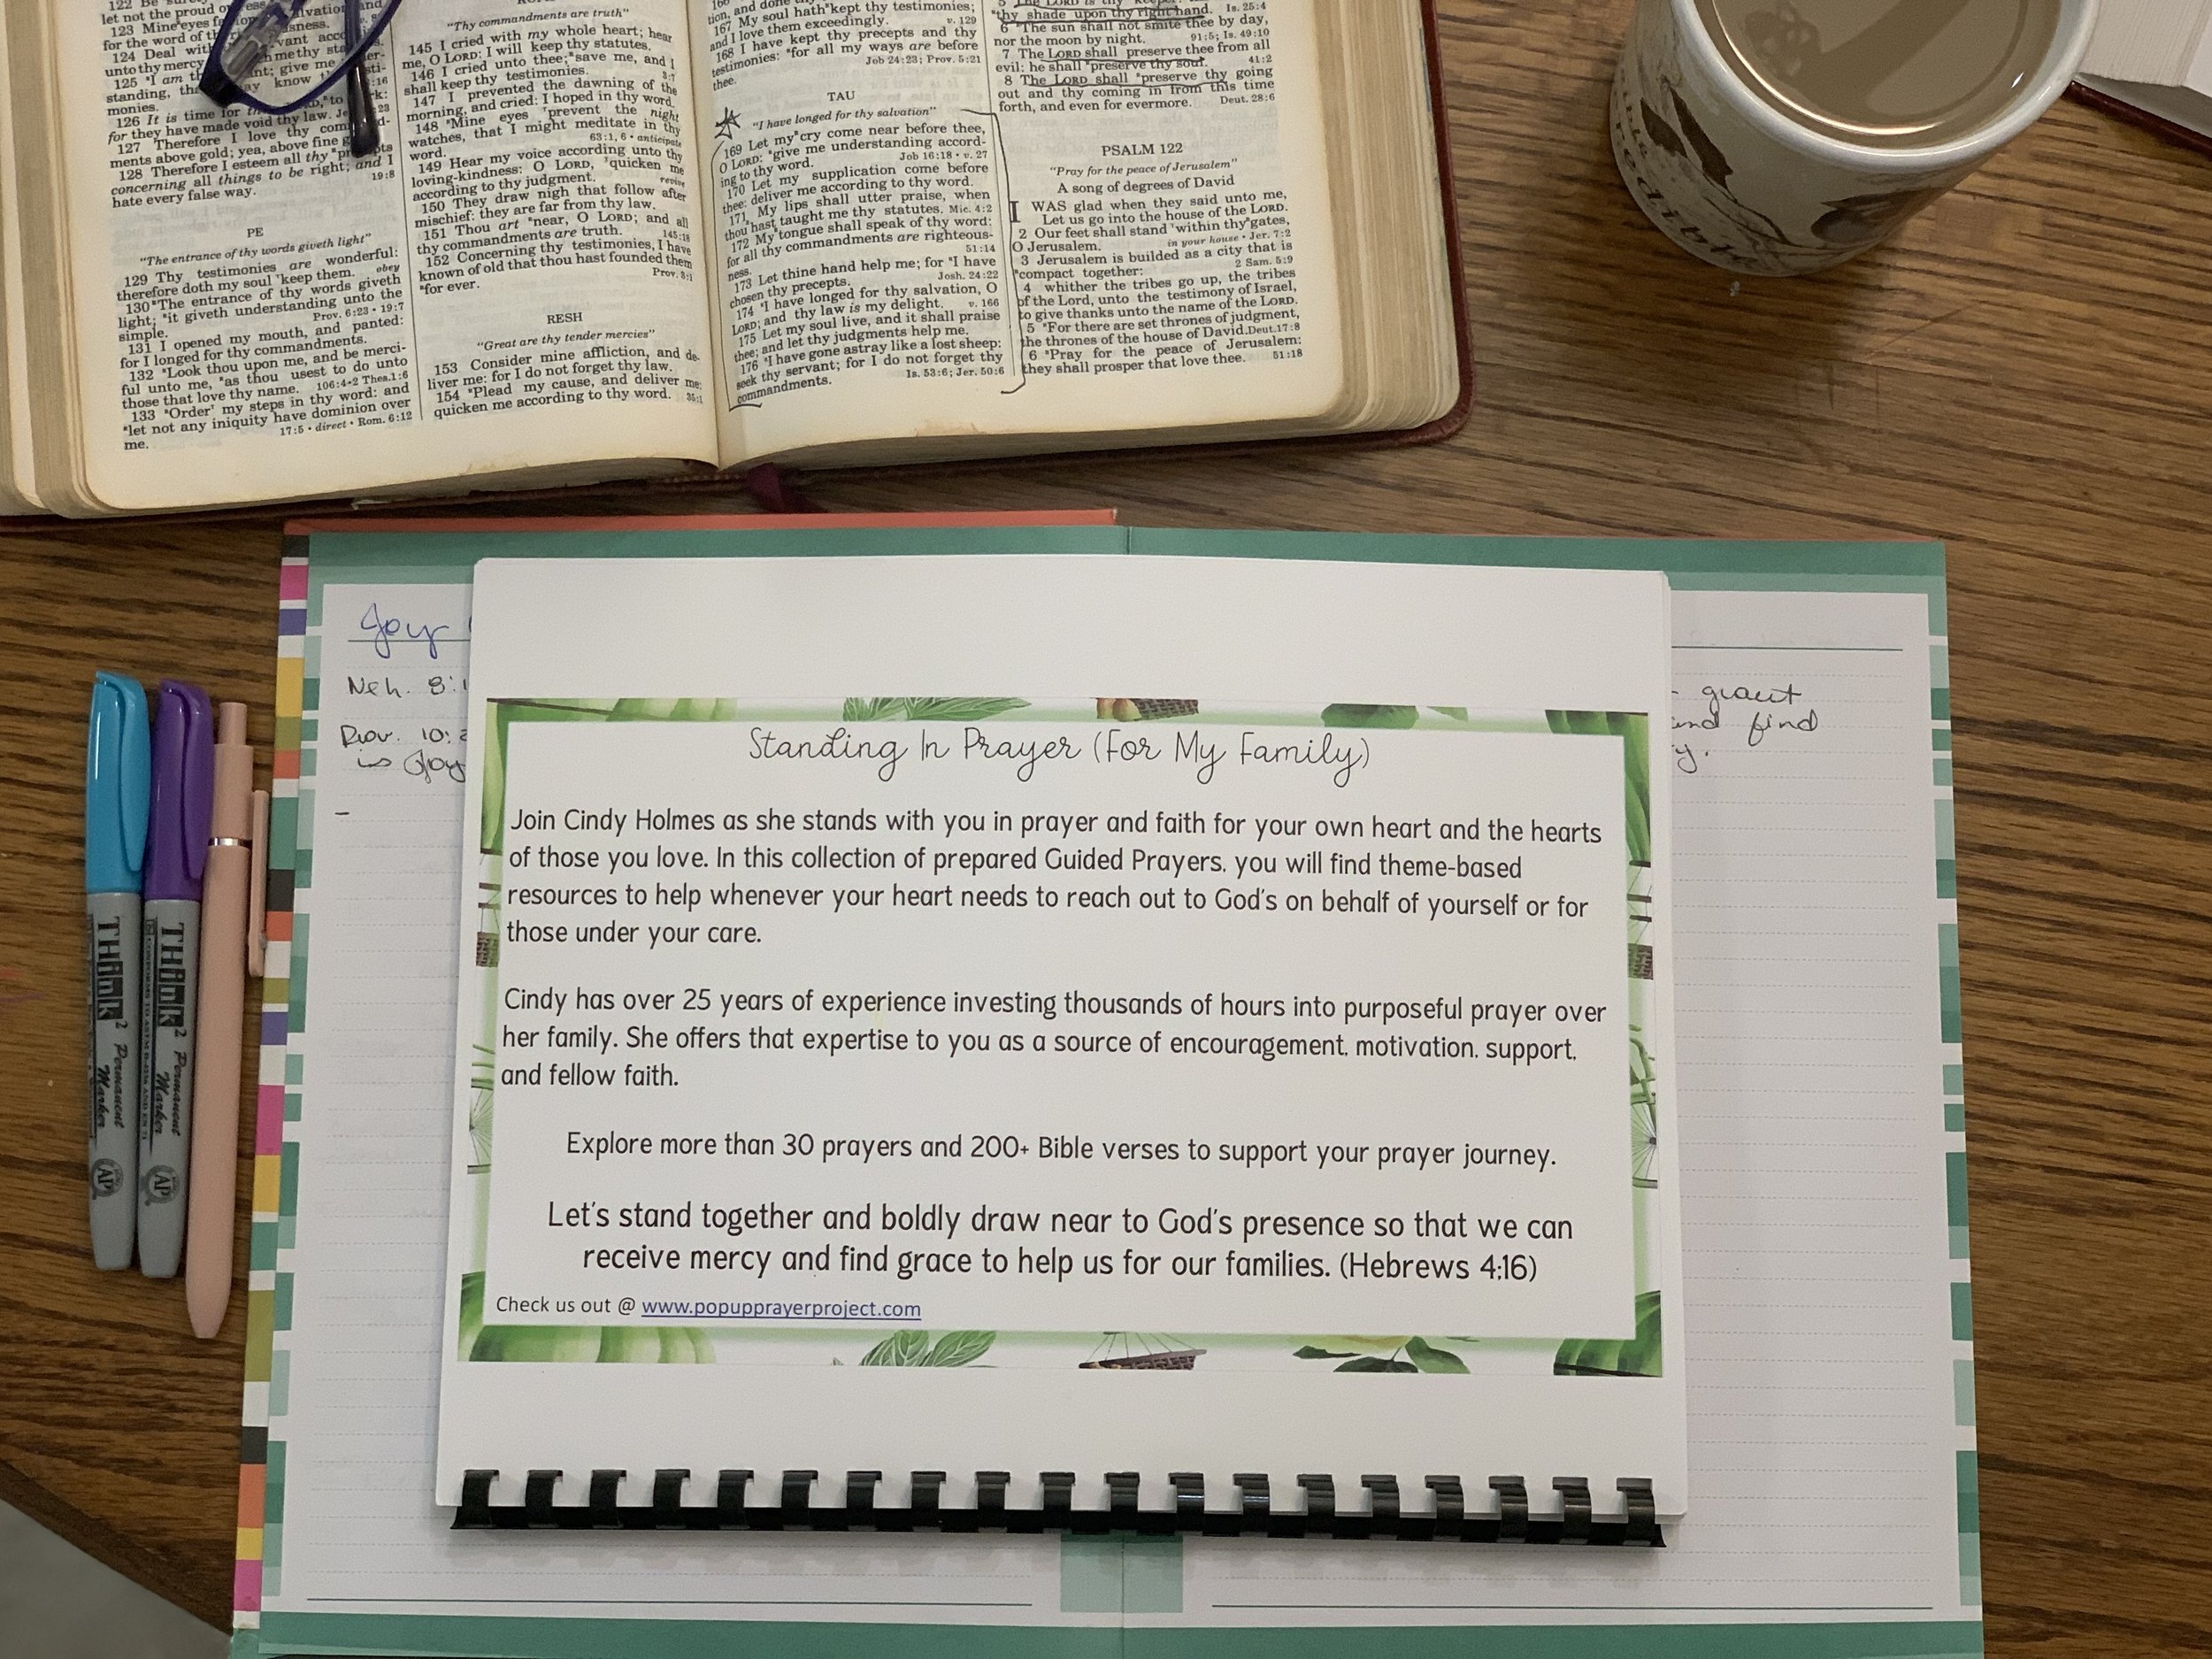 122 Be
let not the proud
123 Mine eyes
for the word of
124 Deal with
unto thy mercy
125 "I am
standing,
monies.
126 It is time for
for they have made void thy law.
127 Therefore I love thy
ments above gold; yea, above fine
128 Therefore I esteem all thy
concerning all things to be right; and I
hate every false way. 19:8
PE
"The entrance of thy words giveth light"
129 Thy testimonies are wonderful:
therefore doth my soul keep them. obey
130 "The entrance of thy words giveth
light; "it giveth understanding unto the
simple. Prov. 6:23 • 19:7
131 I opened my mouth, and panted:
for I longed for thy commandments.
132 "Look thou upon me, and be merci-
ful unto me, "as thou usest to do unto
those that love thy name. 106:4 • 2 Thes.1:6
133 "Order' my steps in thy word: and
"let not any iniquity have dominion over
me. 17:5 • direct • Rom. 6:12
"Thy commandments are truth"
145 I cried with my whole heart; hear
me, O LORD: I will keep thy statutes.
146 I cried unto thee; "save me, and I
shall keep thy testimonies. 3:7
147 I prevented the dawning of the
morning, and cried: I hoped in thy word.
148 "Mine eyes prevent the night
watches, that I might meditate in thy
word. 63:1, 6 • anticipate
149 Hear my voice according unto thy
loving-kindness: O LORD, quicken me
according to thy judgment. revive
150 They draw nigh that follow after
mischief: they are far from thy law.
151 Thou art "near, O LORD; and all
thy commandments are truth. 145:18
152 Concerning thy testimonies, I have
known of old that thou hast founded them
"for ever. Prov. 8:1
RESH
"Great are thy tender mercies"
153 Consider mine affliction, and de-
liver me: for I do not forget thy law.
154 "Plead my cause, and deliver me:
quicken me according to thy word. 35:1
tion, and done
167 My soul hath kept thy testimonies;
and I love them exceedingly. v. 129
168 I have kept thy precepts and thy
testimonies: "for all my ways are before
thee. Job 24:23; Prov. 5:21
TAU
"I have longed for thy salvation"
169 Let my "cry come near before thee,
O LORD: "give me understanding accord-
ing to thy word. Job 16:18 • v. 27
170 Let my supplication come before
thee: deliver me according to thy word.
171 My lips shall utter praise, when
thou hast taught me thy statutes. Mic. 4:2
172 My tongue shall speak of thy word:
for all thy commandments are righteous-
ness. 51:14
173 Let thine hand help me; for "I have
chosen thy precepts. Josh. 24:22
174 "I have longed for thy salvation, O
LORD; and thy law is my delight. v. 166
175 Let my soul live, and it shall praise
thee; and let thy judgments help me.
176 "I have gone astray like a lost sheep:
seek thy servant; for I do not forget thy
commandments. Is. 53:6; Jer. 50:6
"thy shade upon thy right hand. Is. 25:4
6 "The sun shall not smite thee by day,
nor the moon by night. 91:5; Is. 49:10
7 The LORD shall preserve thee from all
evil: he shall "preserve thy soul. 41:2
8 The LORD shall "preserve thy going
out and thy coming in from this time
forth, and even for evermore. Deut. 28:6
PSALM 122
"Pray for the peace of Jerusalem"
A song of degrees of David
I WAS glad when they said unto me,
Let us go into the house of the LORD.
2 Our feet shall stand within thy "gates,
O Jerusalem. in your house • Jer. 7:2
3 Jerusalem is builded as a city that is
"compact together: 2 Sam. 5:9
4 whither the tribes go up, the tribes
of the Lord, unto the testimony of Israel,
to give thanks unto the name of the LORD.
5 "For there are set thrones of judgment,
the thrones of the house of David. Deut.17:8
6 "Pray for the peace of Jerusalem:
they shall prosper that love thee. 51:18
Joy
Neh. 8:1
Prov. 10:2
is Joy
-
grant
and find
y.
Standing In Prayer (For My Family)
Join Cindy Holmes as she stands with you in prayer and faith for your own heart and the hearts
of those you love. In this collection of prepared Guided Prayers, you will find theme-based
resources to help whenever your heart needs to reach out to God's on behalf of yourself or for
those under your care.
Cindy has over 25 years of experience investing thousands of hours into purposeful prayer over
her family. She offers that expertise to you as a source of encouragement, motivation, support,
and fellow faith.
Explore more than 30 prayers and 200+ Bible verses to support your prayer journey.
Let's stand together and boldly draw near to God's presence so that we can
receive mercy and find grace to help us for our families. (Hebrews 4:16)
Check us out @ www.popupprayerproject.com
THink² Permanent Marker
AP
THink² Permanent Marker
CONFORMS TO ASTM D-4236 AND EN 71
AP